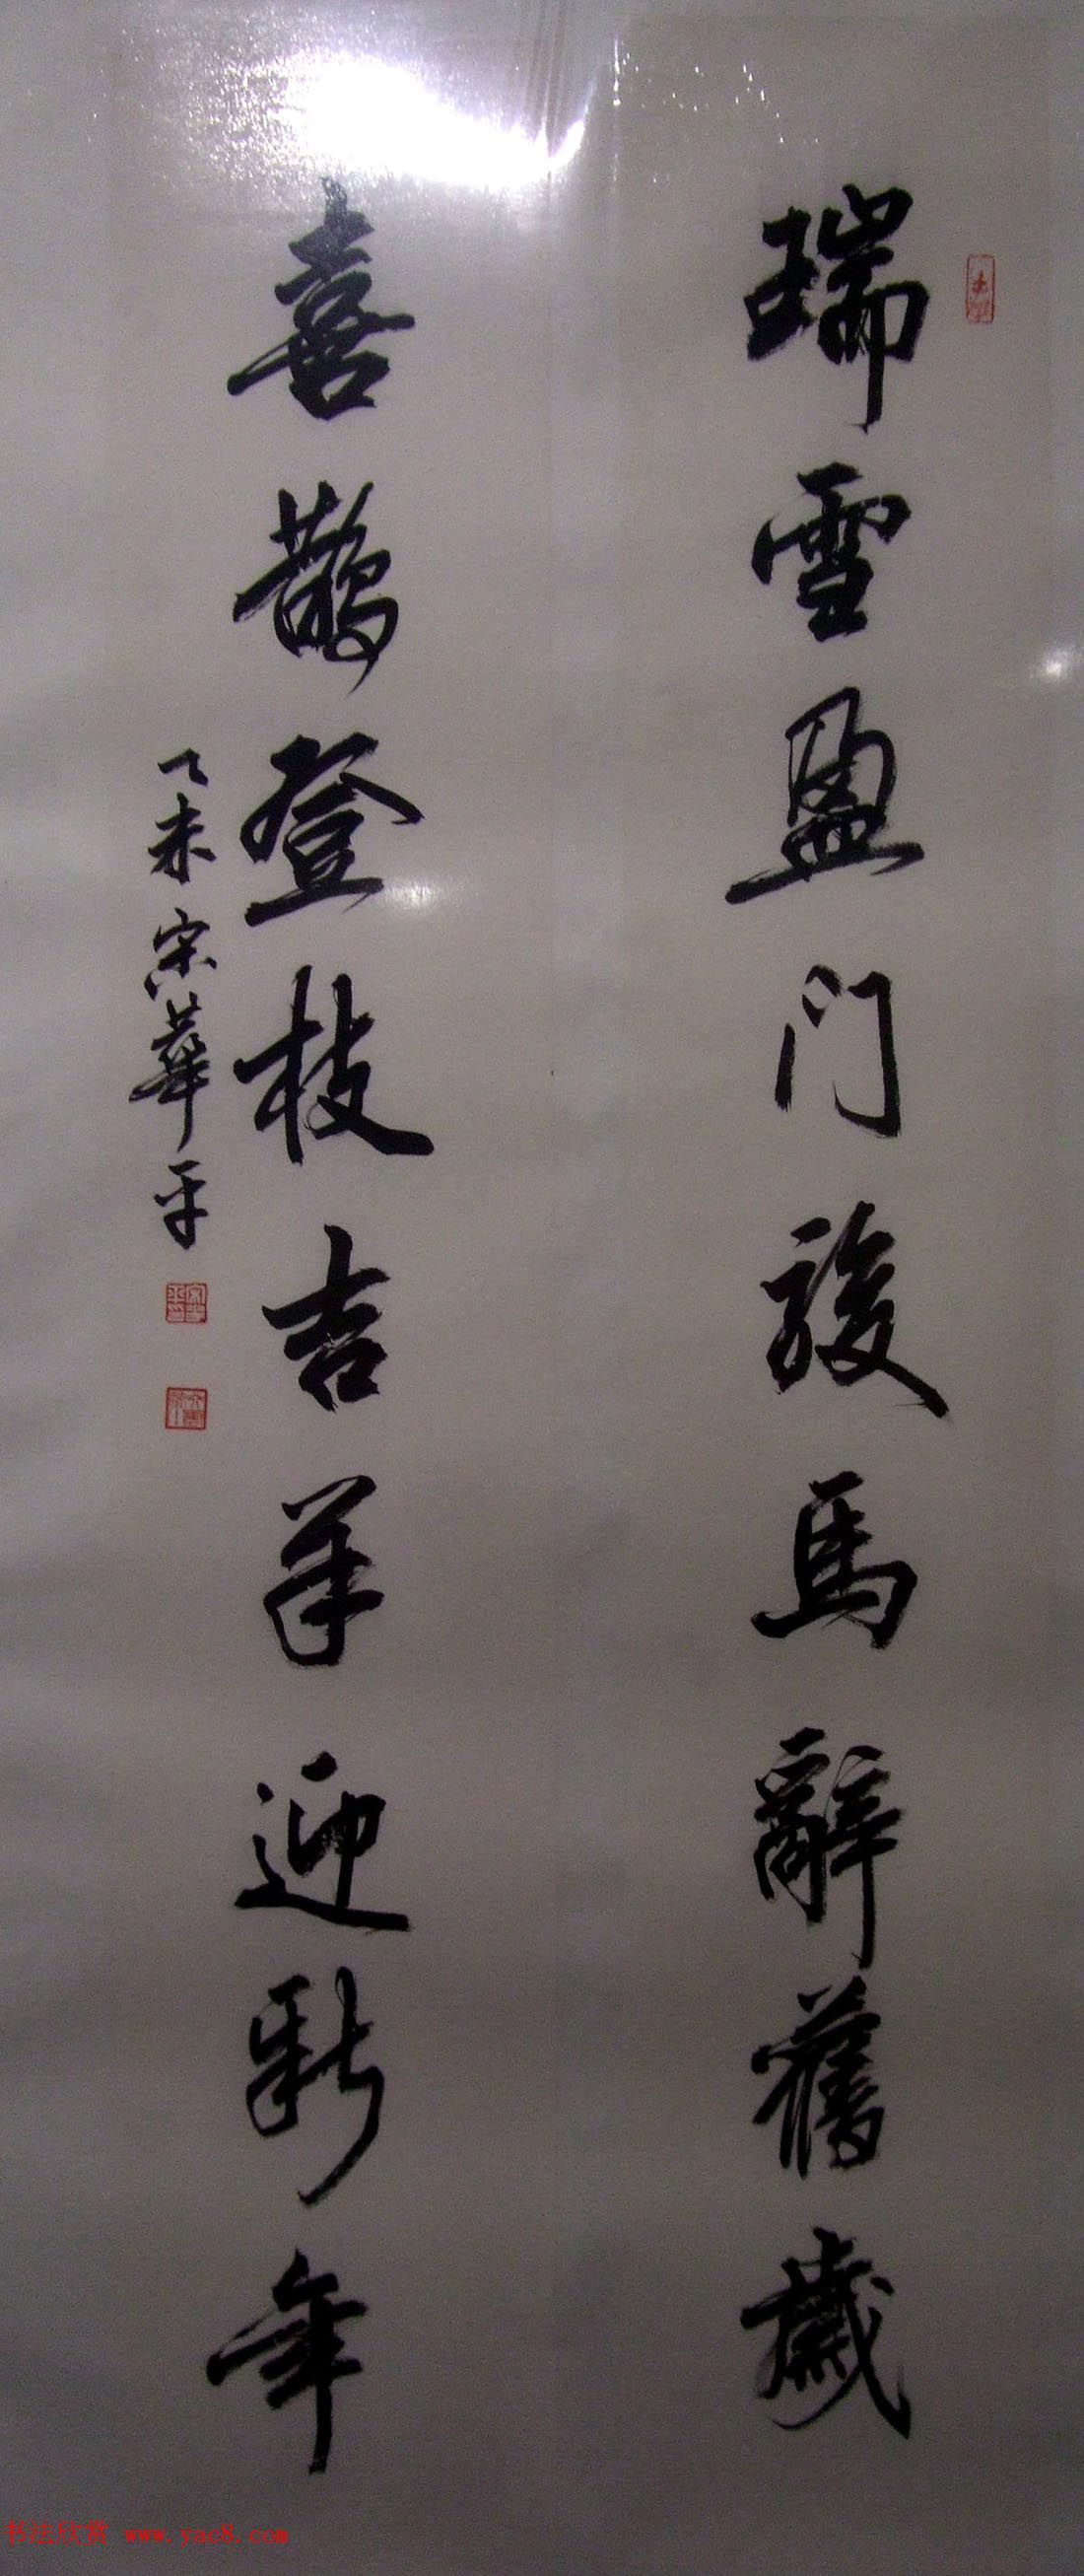 瑞雪盈门骏馬辭舊歲
喜鹊登枝吉羊迎新年
乙未宋華平
书法欣赏 www.yac8.com